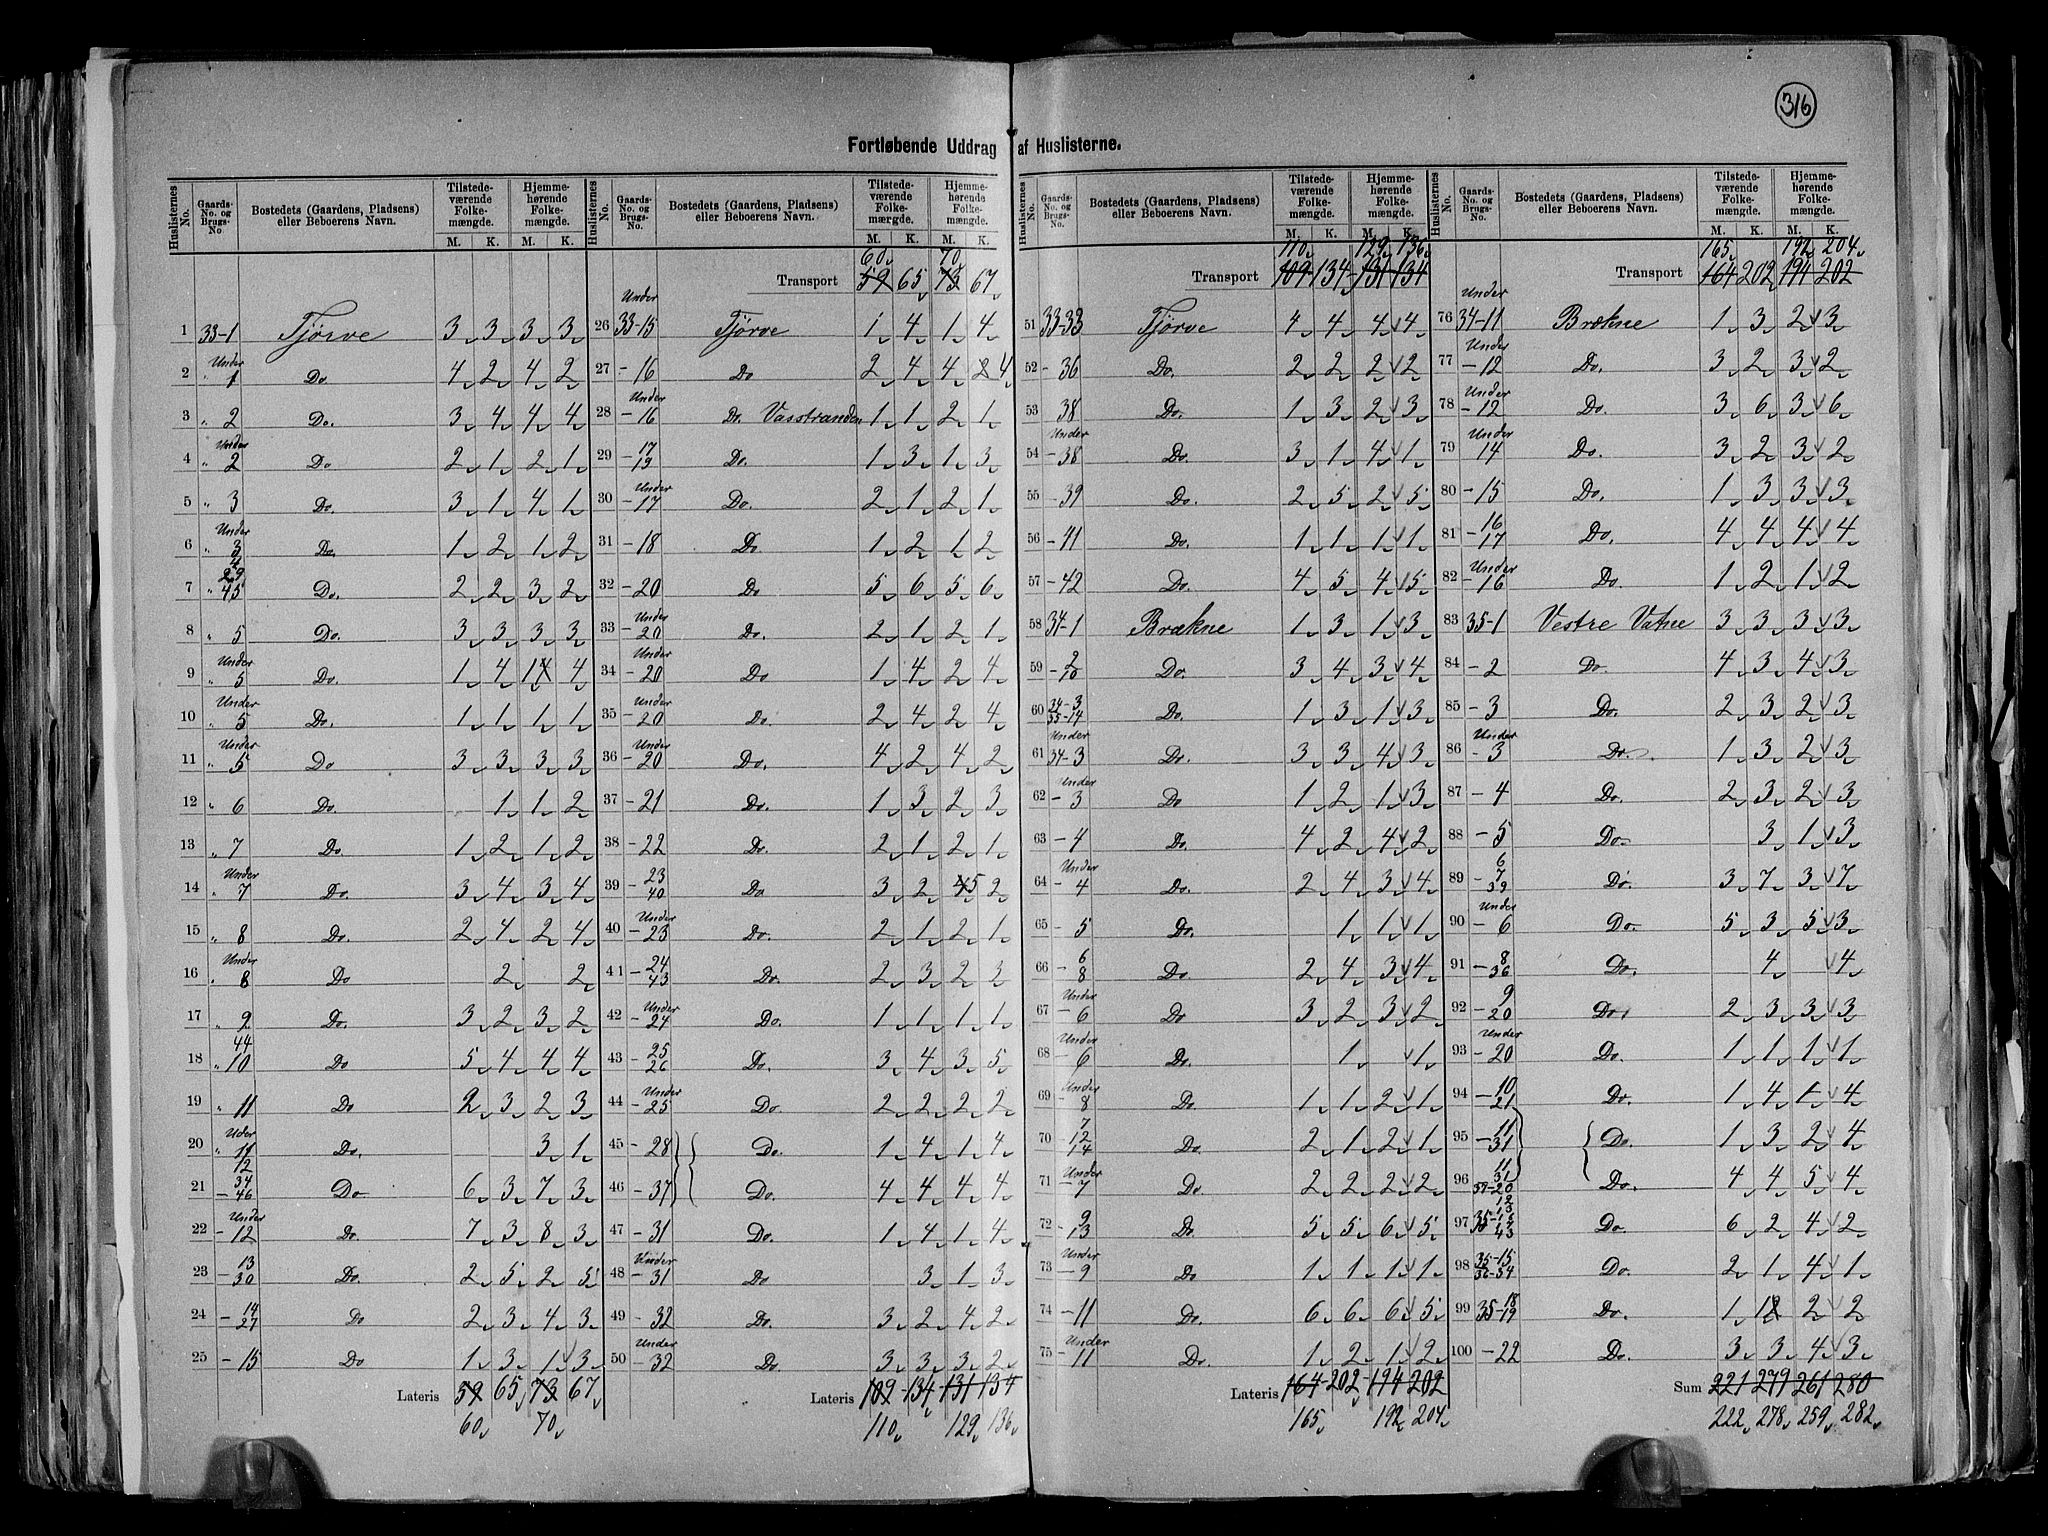 316
Fortløbende Uddrag af Huslisterne.
Huslisternes No. | Gaards-No. og Brugs-No. | Bostedets (Gaardens, Pladsens) eller Beboerens Navn. | Tilstedeværende Folkemængde. M. K. | Hjemmehørende Folkemængde. M. K.
1 33-1 Tjørve 3 3 3 3
2 Under " 1 Do. 4 2 4 2
3 " 2 Do. 3 4 4 4
4 Under " 2 Do 2 1 2 1
5 " 3 Do. 3 1 4 1
6 Under " 3 Do. 1 2 1 2
7 " 4 29 45 Do. 2 2 3 2
8 " 5 Do. 3 3 3 3
9 Under " 5 Do. 1 4 1 4
10 Under " 5 Do. 1 1 1 1
11 Under " 5 Do 3 3 3 3
12 " 6 Do. 1 1 2
13 " 7 Do 1 2 1 2
14 Under " 7 Do. 3 4 3 4
15 " 8 Do. 2 4 2 4
16 Under " 8 Do 2 2
17 " 9 Do. 3 2 3 2
18 44 " 10 Do 5 4 4 4
19 " 11 Do 2 3 2 3
20 Uder " 11 Do. 3 1
21 12 34 - 46 Do 6 3 7 3
22 Under - 12 Do. 7 3 8 3
23 - 13 30 Do. 2 5 2 5
24 - 14 27 Do 2 3 4 3
25 - 15 Do 1 3 1 3
Lateris 59 65 73 67
60 70
60 70
Transport 59 65 73 67
26 Under 33-15 Tjørve 1 4 1 4
27 - 16 Do 2 4 4 2 4
28 Under - 16 Do. Vasstranden 1 1 2 1
29 - 17 19 Do. 1 3 1 3
30 Under - 17 Do. 2 1 2 1
31 - 18 Do 1 2 1 2
32 - 20 Do 5 6 5 6
33 Under - 20 Do. 2 1 2 1
34 Under - 20 Do 1 4 2 4
35 Under - 20 Do. 2 4 2 4
36 Under - 20 Do. 4 2 4 2
37 - 21 Do. 1 3 2 3
38 - 22 Do. 2 1 2 1
39 - 23 40 Do 3 2 4 5 2
40 Under - 23 Do. 2 1 2 1
41 - 24 43 Do. 2 3 2 3
42 Under - 24 Do. 1 1 1 1
43 - 25 26 Do. 3 4 3 5
44 Under - 25 Do. 2 2 2 2
45 - 28 Do. 1 4 1 4
46 - 37 Do. 4 4 4 4
47 - 31 Do. 1 4 1 4
48 Under - 31 Do 3 1 3
49 - 32 Do. 3 2 4 2
50 Under - 32 Do. 3 3 3 2
Lateris 109 134 131 134
110 129 136
Huslisternes No. | Gaards-No. og Brugs-No. | Bostedets (Gaardens, Pladsens) eller Beboerens Navn. | Tilstedeværende Folkemængde. M. K. | Hjemmehørende Folkemængde. M. K.
110 129 136
Transport 109 134 131 134
51 33-33 Tjørve 4 4 4 4
52 - 36 Do. 2 2 2 2
53 38 Do. 1 3 2 3
54 Under - 38 Do. 3 1 4 1
55 - 39 Do. 2 5 2 5
56 - 41 Do. 1 1 1 1
57 - 42 Do. 4 5 4 5
58 34-1 Brækne 1 3 1 3
59 - 2 10 Do. 3 4 3 4
60 34-3 35-14 Do. 1 3 1 3
61 Under 34-3 Do. 3 3 4 3
62 Under - 3 Do 1 2 1 3
63 - 4 Do. 4 2 4 2
64 Under - 4 Do. 2 4 3 4
65 - 5 Do. 1 1 1
66 - 6 8 Do 2 4 3 4
67 Under - 6 Do 3 2 3 2
68 Under - 6 Do. 1 1
69 Under - 8 Do. 1 1 2 1
70 7 - 12 14 Do. 2 1 2 1
71 Under - 7 Do 2 2 2 2
72 - 9 13 Do. 5 5 6 5
73 Under - 9 Do 1 1 1 1
74 - 11 Do. 6 6 6 5
75 Under - 11 Do. 1 2 1 2
Lateris 164 202 194 202
165 192 204
165 192 204
Transport 164 202 194 202
76 Under 34-11 Brækne 1 3 2 3
77 Under - 12 Do. 3 2 3 2
78 Under - 12 Do. 3 6 3 6
79 Under 14 Do. 3 2 3 2
80 - 15 Do. 1 3 3 3
81 - 16 17 Do. 4 4 4 4
82 Under - 16 Do. 1 2 1 2
83 35-1 Vestre Vatne 3 3 3 3
84 - 2 Do. 4 3 4 3
85 - 3 Do. 2 3 2 3
86 Under - 3 Do. 1 3 2 3
87 - 4 Do. 2 3 2 3
88 - 5 Do. 3 1 3
89 6 - 7 39 Do. 3 7 3 7
90 Under - 6 Do. 5 3 5 3
91 - 8 36 Do. 4 4
92 9 - 20 Do. 2 3 3 3
93 Under - 20 Do. 1 1 1 1
94 - 10 21 Do. 1 4 1 4
95 - 11 31 Do. 1 3 2 4
96 11 31 Do. 4 4 5 4
97 Do 6 2 4 2
98 35-15 36-34 Do. 2 1 4 1
99 35-18 19 Do. 1 2 2
100 - 22 Do. 3 3 4 3
Sum 221 279 261 280
222 278 259 282